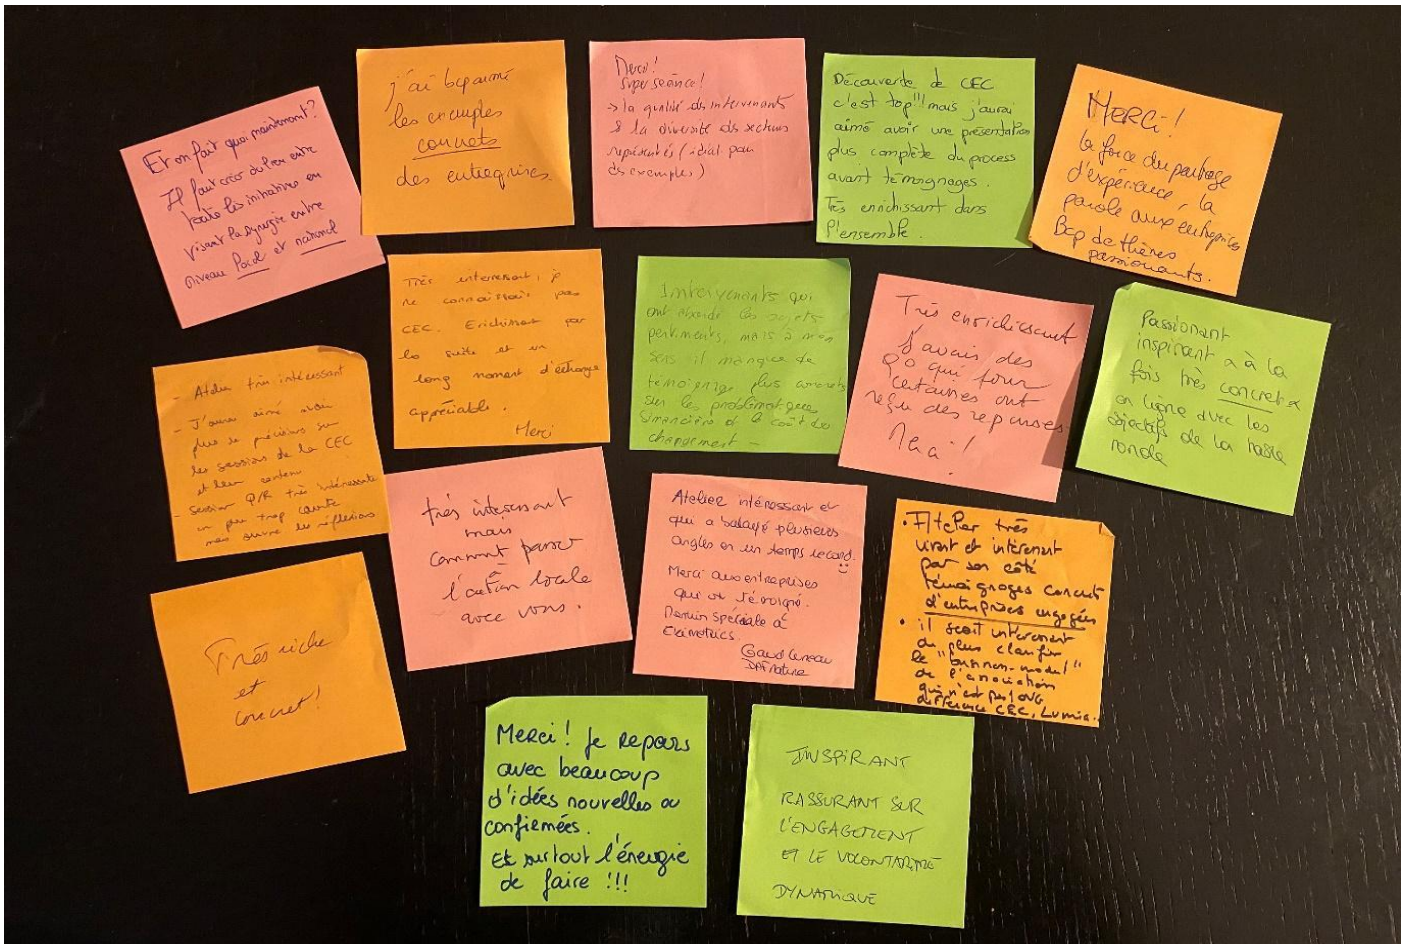 Et on fait quoi maintenant ?
Il faut créer du lien entre
toute les initiatives en
visant la synergie entre
niveau local et national
j'ai bcp aimé
les exemples
concrets
des entreprises
Merci !
Super séance !
→ la qualité des intervenants
& la diversité des secteurs
représentés (idéal pour
des exemples)
Découverte de CEC
c'est top !!! mais j'aurai
aimé avoir une présentation
plus complète du process
avant témoignages.
Très enrichissant dans
l'ensemble.
MERCi !
la force du partage
d'expérience, la
parole aux entreprises
Bcp de thèmes
passionants.
Très interressant, je
ne connaissais pas
CEC. Enrichissant par
la suite et un
long moment d'échange
appréciable.
Merci
Intervenants qui
ont abordé les sujets
pertinents, mais à mon
sens il manque de
témoignage plus
sur les problématiques
financières et le coût du
changement -
Très enrichissant
J'avais des
QO qui pour
certaines ont
reçu des reponses.
Merci !
Passionant
inspirant & à la
fois très concret &
en ligne avec les
objectifs de la table
ronde
- Atelier très intéressant
- J'aurai aimé avoir
plus de précisions sur
les sessions de la CEC
et leur contenu
- Session Q/R très intéressante
un peu trop courte
mais ouvre les réflexions
très interessant
mais
comment passer
à
l'action locale
avec vous.
Atelier intéressant et
qui a balayé plusieurs
angles en un temps record.
☺
Merci aux entreprises
qui ont témoigné.
Mention spéciale à
Eximetrics.
DPI nature
• Atelier très
vivant et intéressant
par son côté
témoignages concrets
d'entreprises engagées
• il serait interessant
de plus clarifier
le "business-model"
de l'association
qui n'est pas ONG,
différence CEC, Lumia..
Très riche
et
concret !
Merci ! Je repars
avec beaucoup
d'idées nouvelles ou
confirmées.
Et surtout l'énergie
de faire !!!
INSPIRANT
RASSURANT SUR
L'ENGAGEMENT
ET LE VOLONTARISME
DYNAMIQUE